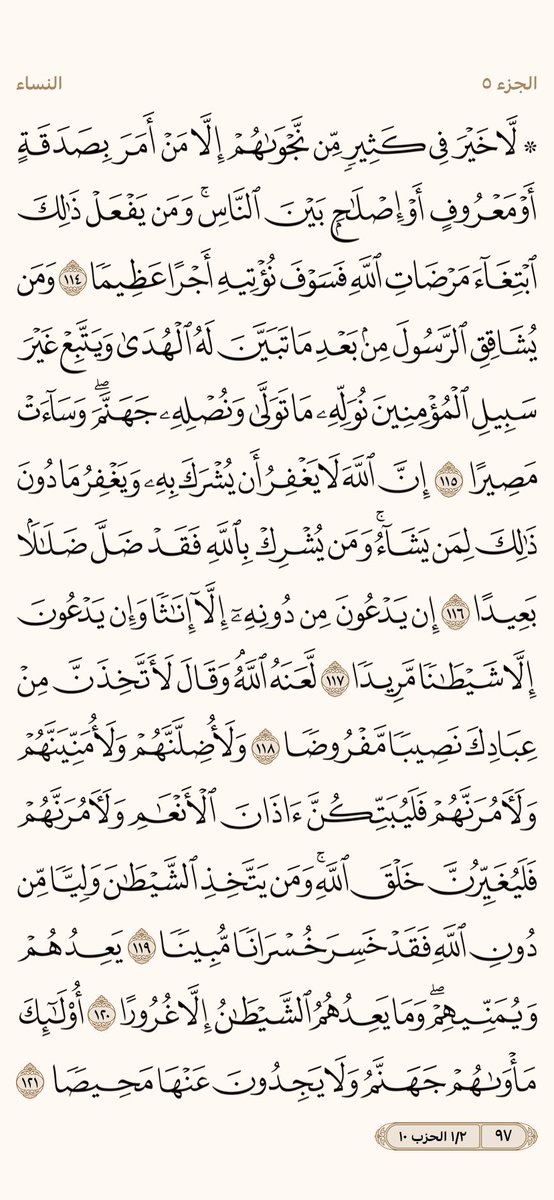 الجزء ٥ النساء
۞ لَّا خَيۡرَ فِي كَثِيرٖ مِّن نَّجۡوَىٰهُمۡ إِلَّا مَنۡ أَمَرَ بِصَدَقَةٍ
أَوۡ مَعۡرُوفٍ أَوۡ إِصۡلَٰحِۭ بَيۡنَ ٱلنَّاسِۚ وَمَن يَفۡعَلۡ ذَٰلِكَ
ٱبۡتِغَآءَ مَرۡضَاتِ ٱللَّهِ فَسَوۡفَ نُؤۡتِيهِ أَجۡرًا عَظِيمٗا ١١٤ وَمَن
يُشَاقِقِ ٱلرَّسُولَ مِنۢ بَعۡدِ مَا تَبَيَّنَ لَهُ ٱلۡهُدَىٰ وَيَتَّبِعۡ غَيۡرَ
سَبِيلِ ٱلۡمُؤۡمِنِينَ نُوَلِّهِۦ مَا تَوَلَّىٰ وَنُصۡلِهِۦ جَهَنَّمَۖ وَسَآءَتۡ
مَصِيرًا ١١٥ إِنَّ ٱللَّهَ لَا يَغۡفِرُ أَن يُشۡرَكَ بِهِۦ وَيَغۡفِرُ مَا دُونَ
ذَٰلِكَ لِمَن يَشَآءُۚ وَمَن يُشۡرِكۡ بِٱللَّهِ فَقَدۡ ضَلَّ ضَلَٰلَۢا
بَعِيدًا ١١٦ إِن يَدۡعُونَ مِن دُونِهِۦٓ إِلَّآ إِنَٰثٗا وَإِن يَدۡعُونَ
إِلَّا شَيۡطَٰنٗا مَّرِيدٗا ١١٧ لَّعَنَهُ ٱللَّهُۘ وَقَالَ لَأَتَّخِذَنَّ مِنۡ
عِبَادِكَ نَصِيبٗا مَّفۡرُوضٗا ١١٨ وَلَأُضِلَّنَّهُمۡ وَلَأُمَنِّيَنَّهُمۡ
وَلَأٓمُرَنَّهُمۡ فَلَيُبَتِّكُنَّ ءَاذَانَ ٱلۡأَنۡعَٰمِ وَلَأٓمُرَنَّهُمۡ
فَلَيُغَيِّرُنَّ خَلۡقَ ٱللَّهِۚ وَمَن يَتَّخِذِ ٱلشَّيۡطَٰنَ وَلِيّٗا مِّن
دُونِ ٱللَّهِ فَقَدۡ خَسِرَ خُسۡرَانٗا مُّبِينٗا ١١٩ يَعِدُهُمۡ
وَيُمَنِّيهِمۡۖ وَمَا يَعِدُهُمُ ٱلشَّيۡطَٰنُ إِلَّا غُرُورًا ١٢٠ أُوْلَٰٓئِكَ
مَأۡوَىٰهُمۡ جَهَنَّمُ وَلَا يَجِدُونَ عَنۡهَا مَحِيصٗا ١٢١
٩٧ ١/٢ الحزب ١٠